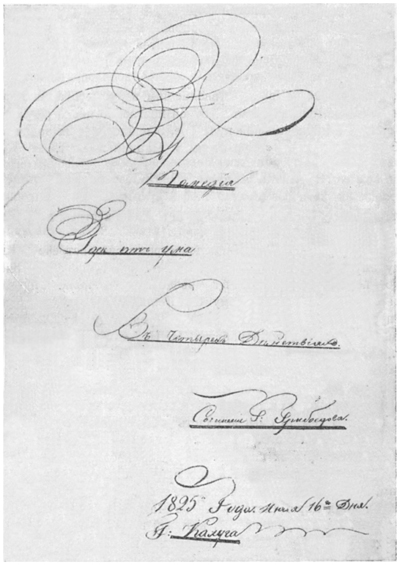 Комедія
Горе отъ ума
Въ Четырехъ Действіяхъ.
Сочинен: Г: Грибоедова.
1825 Года. 16го Дня.
Г: Калуга